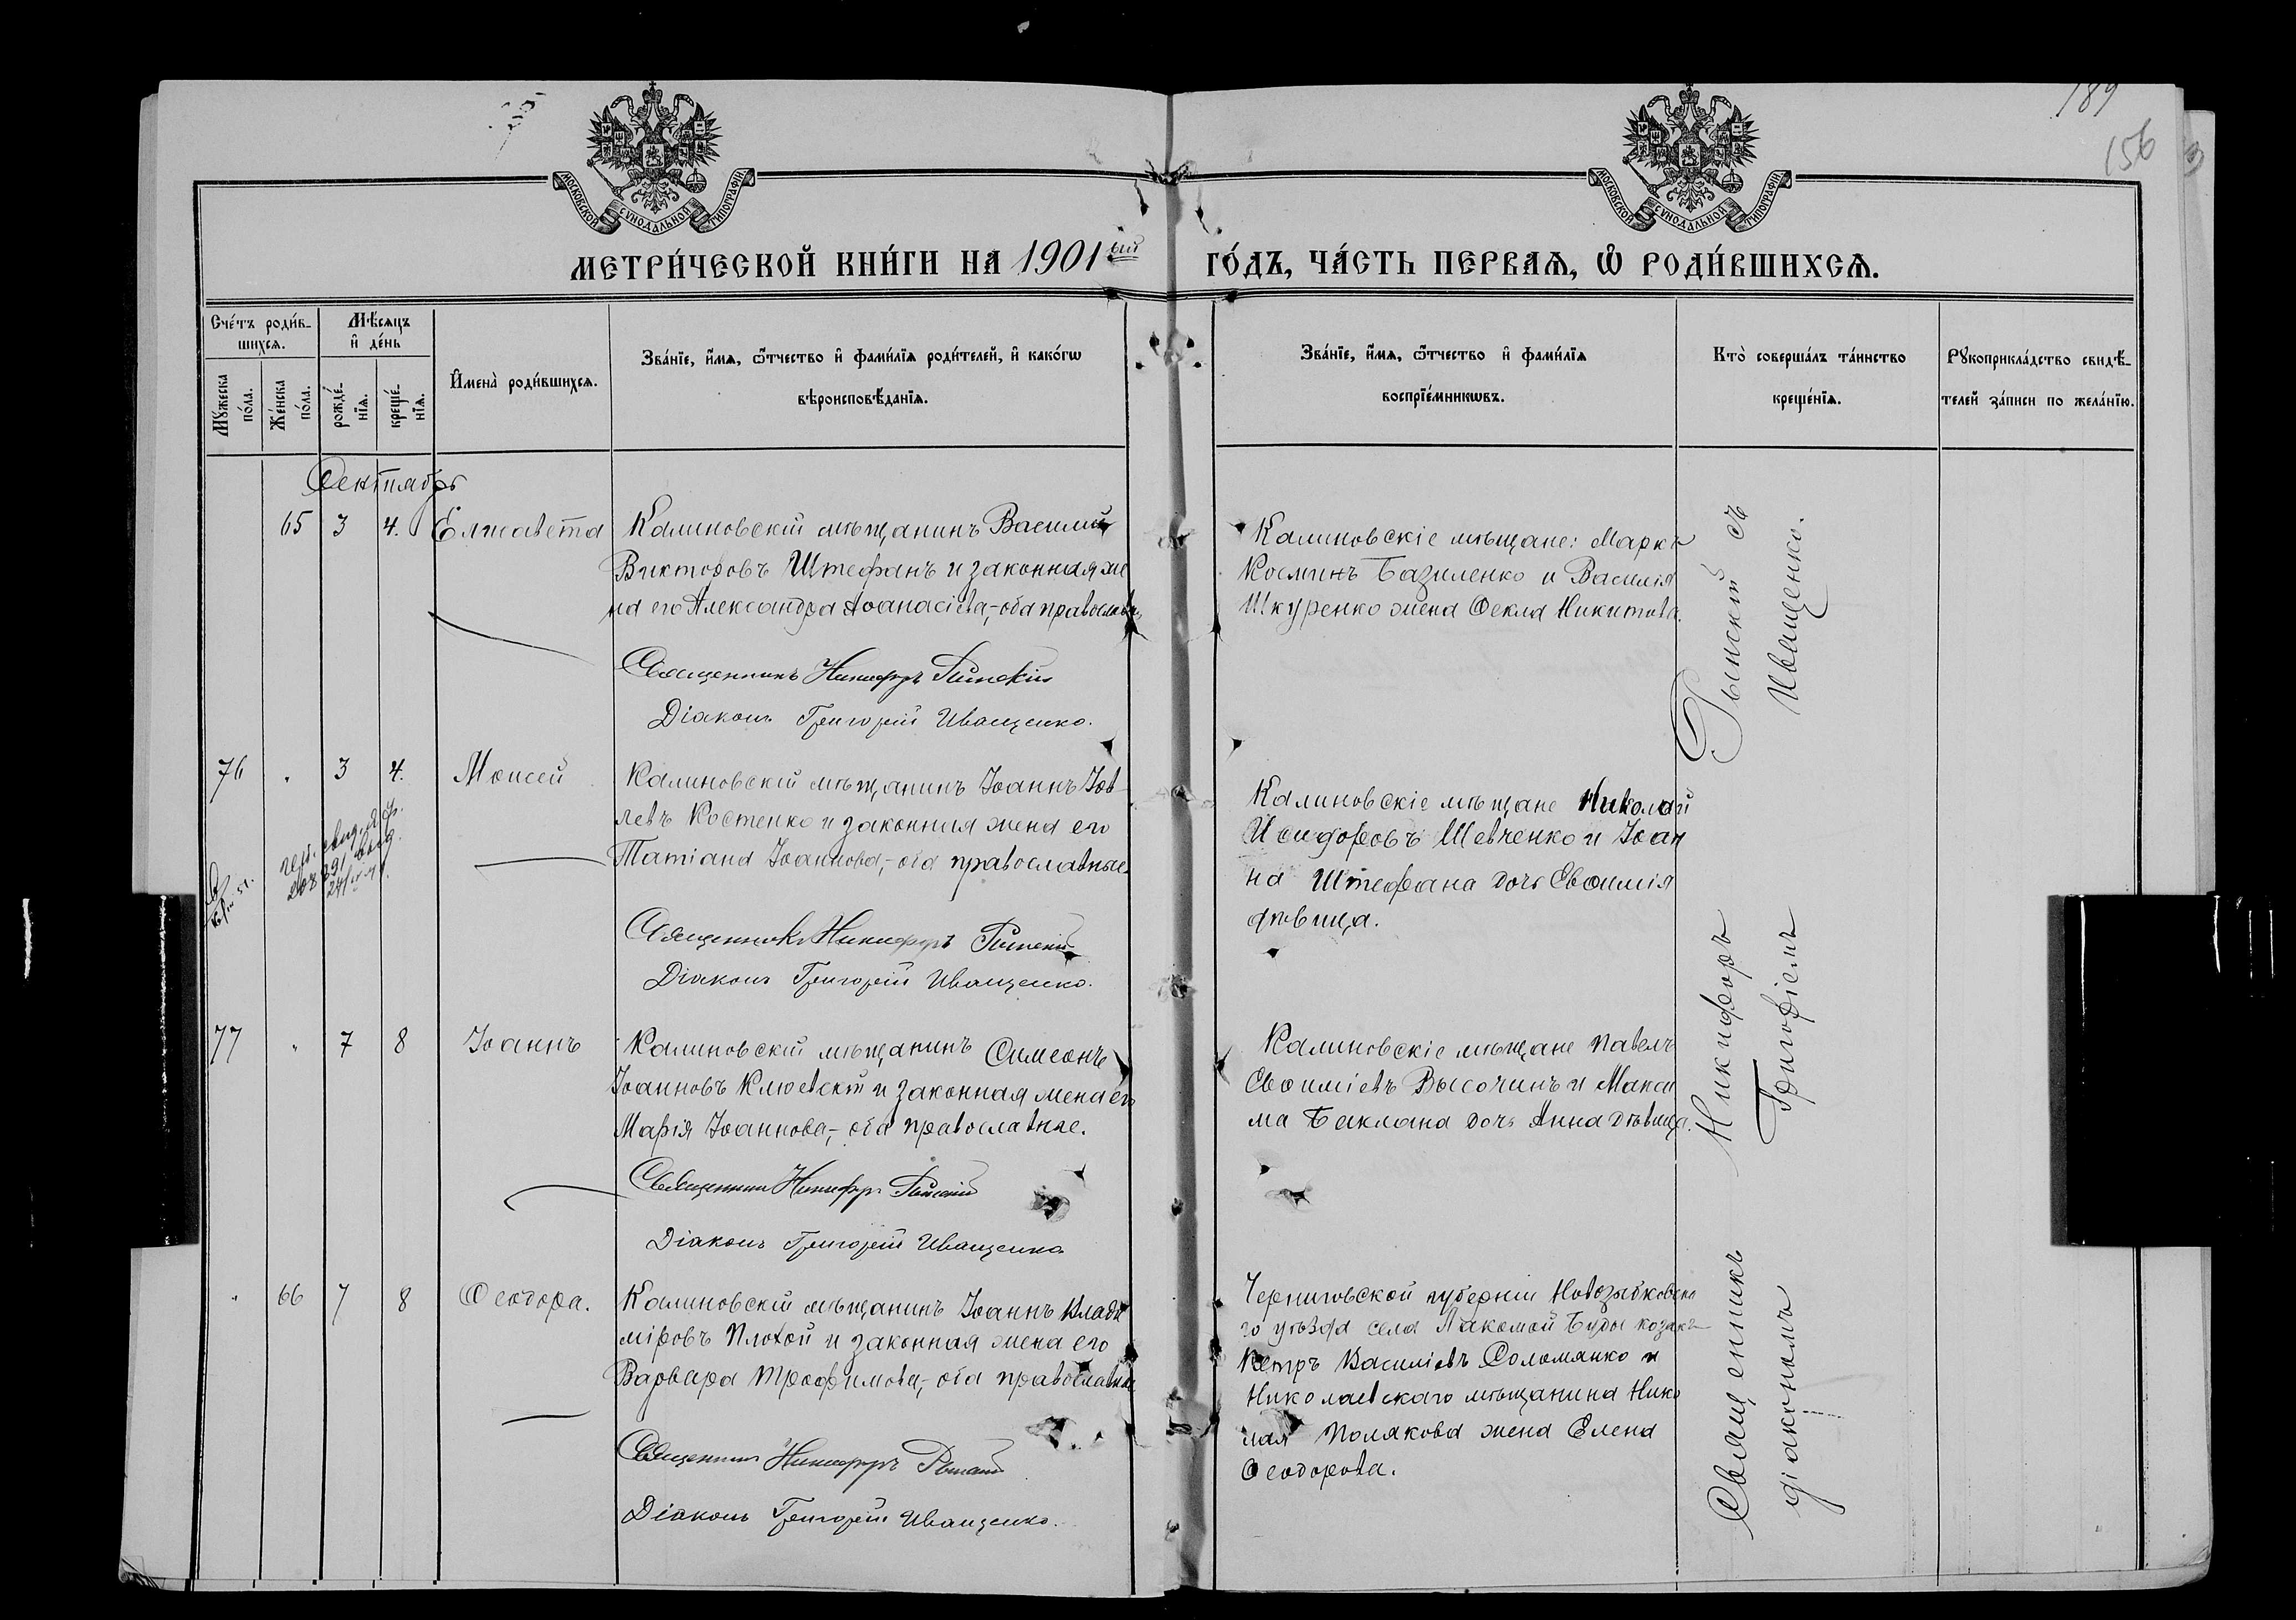 189
156
МОСКОВСКОЙ СѴНОДАЛЬНОЙ ТИПОГРАФІИ
МОСКОВСКОЙ СѴНОДАЛЬНОЙ ТИПОГРАФІИ
МЕТРИ́ЧЕСКОЙ КНИ́ГИ НА 1901ый ГО́ДЪ, ЧА́СТЬ ПЕРВАѦ, Ѡ҆ РОДИ́ВШИХСѦ.
Сче́тъ роди́в-
шихсѧ.
Мꙋ́жеска
по́ла.
Же́нска
по́ла.
Мѣ́сѧцъ
и҆ де́нь
рожде́-
нїѧ.
креще́-
нїѧ.
И҆мена̀ роди́вшихсѧ.
Зва́нїе, и҆́мѧ, ѻ҆́тчество и҆ фами́лїѧ роди́телей, и҆ како́гѡ
вѣроисповѣ́данїѧ.
Зва́нїе, и҆́мѧ, ѻ҆́тчество и҆ фами́лїѧ
воспрїе́мникѡвъ.
Кто̀ соверша́лъ та́инство
креще́нїѧ.
Рꙋкоприкла́дство свидѣ́-
телей за́писи по жела́нїю.
Сентябрь
65 3 4. Елисавета
Калиновскій мѣщанинъ Василій
Викторовъ Штефанъ и законная же
на его Александра Аѳанасіева,- оба православн.
Священникъ Никифоръ Рынскій
Діаконъ Григорій Иващенко.
Калиновскіе мѣщане: Маркъ
Косминъ Базиленко и Василія
Шкуренко жена Ѳекла Никитова.
76 " 3 4. Моисей
Калиновскій мѣщанинъ Іоаннъ Іов
левъ Костенко и законная жена его
Татіана Іоаннова,- оба православные.
Священникъ Никифоръ Рынскій
Діаконъ Григорій Иващенко.
Калиновскіе мѣщане Николай
Исидоровъ Шевченко и Іоан
на Штефана дочь Евѳимія
дѣвица.
77 " 7 8 Іоаннъ
Калиновскій мѣщанинъ Симеонъ
Іоанновъ Клюевскій и законная жена его
Марія Іоаннова,- оба православные.
Священникъ Никифоръ Рынскій
Діаконъ Григорій Иващенко
Калиновскіе мѣщане Павелъ
Евѳиміевъ Высочинъ и Макси
ма Баклана дочь Анна дѣвица.
" 66 7 8 Ѳеодора.
Калиновскій мѣщанинъ Іоаннъ Влади
міровъ Плохой и законная жена его
Варвара Трофимова,- оба православные
Священникъ Никифоръ Рынскій
Діаконъ Григорій Иващенко.
Черниговской губерніи Новозыбковска
го уѣзда села Лакомой Буды козакъ
Петръ Василіевъ Соломянко и
Николаевскаго мѣщанина Нико
лая Полякова жена Елена
Ѳеодорова.
Священникъ Никифоръ Рынскій съ
діакономъ Григоріемъ Иващенко.